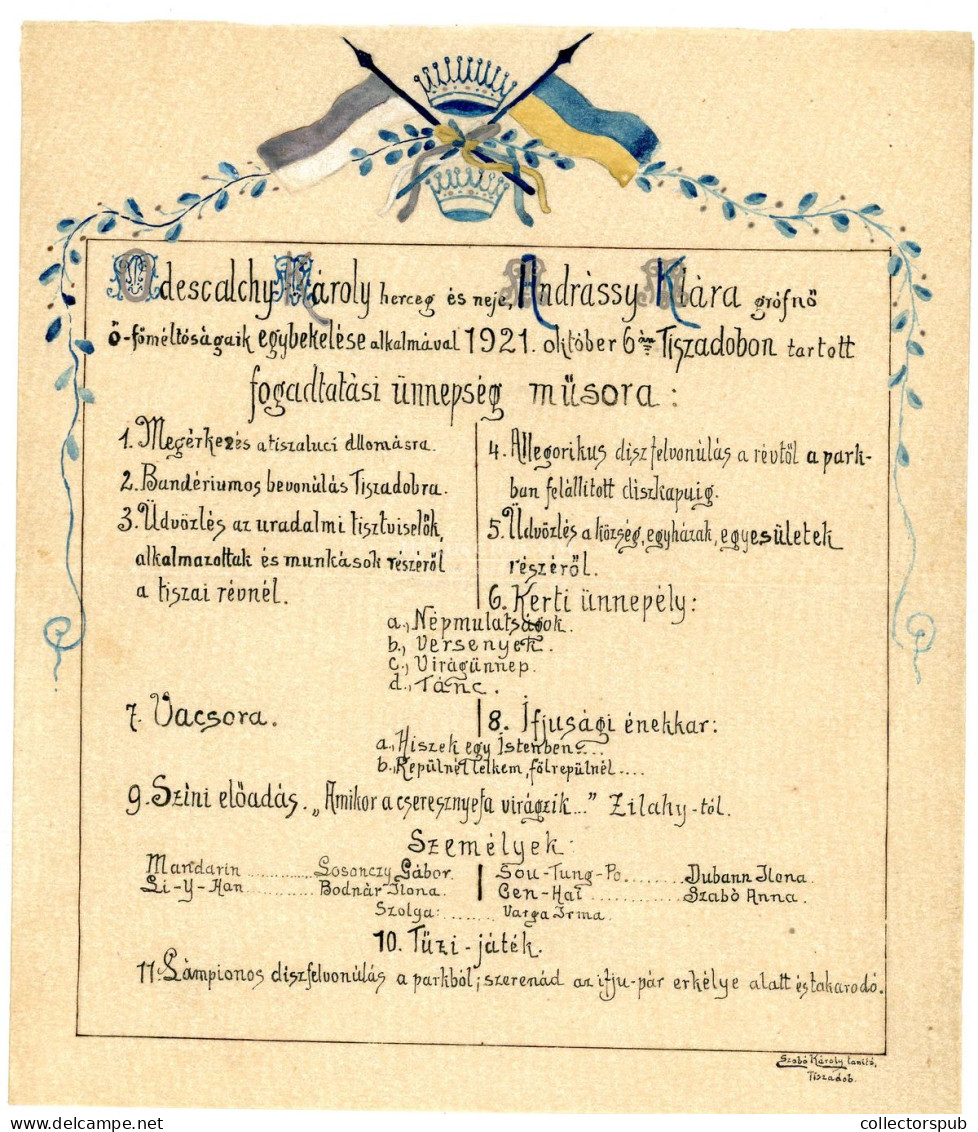 Odescalchy Károly herceg és neje, Andrássy Klára grófnő
ő-főméltóságaik egybekelése alkalmával 1921. október 6án Tiszadobon tartott
fogadtatási ünnepség műsora:
1. Megérkezés a tiszaluci állomásra.
2. Bandériumos bevonúlás Tiszadobra.
3. Üdvözlés az uradalmi tisztviselők,
alkalmazottak és munkások részéről
a tiszai révnél.
4. Allegorikus diszfelvonúlás a révtől a park-
ban felállitott diszkapuig.
5. Üdvözlés a község, egyházak, egyesületek
részéről.
6. Kerti ünnepély:
a., Népmulatságok.
b., Versenyek.
c., Virágünnep.
d., Tánc.
7. Vacsora.
8. Ifjusági énekkar:
a., Hiszek egy Istenben....
b., Repülnél lelkem, fölrepülnél....
9. Színi előadás. „Amikor a cseresznyefa virágzik..." Zilahy-tól.
Személyek:
Mandarin .............. Losonczy Gábor.
Li-Y-Han .......... Bodnár Ilona.
Sou-Tung-Po........ Dubann Ilona.
Cen-Haï ............ Szabó Anna.
Szolga: ........ Varga Irma.
10. Tűzi-játék.
11. Lámpionos díszfelvonúlás a parkból; szerenád az ifju-pár erkélye alatt és takarodó.
Szabó Károly tanító,
Tiszadob.
collectorspub